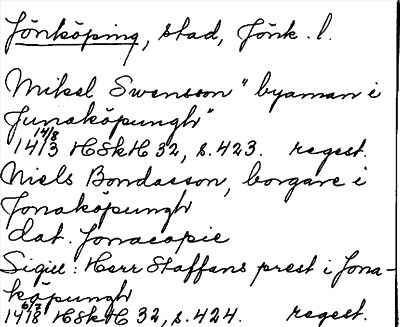 Jönköping, stad, Jönk. l.
Mikal Swensson "byaman i
Junakøpungh"
14/8
1413 HSkH 32, s. 423. regest.
Niels Bondasson, borgare i
Jonakøpungh
dat. Jonacopie
Sigill: Herr Staffans prest i Jona-
køpungh
6/7
1418 HSkH 32, s. 424. regest.